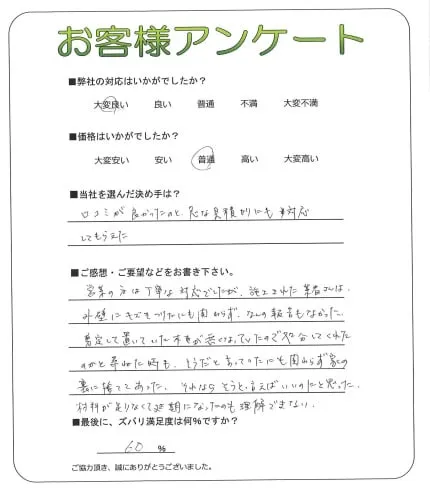 お客様アンケート
■弊社の対応はいかがでしたか？
大変良い 良い 普通 不満 大変不満
■価格はいかがでしたか？
大変安い 安い 普通 高い 大変高い
■当社を選んだ決め手は？
口コミが良かったのと、急な見積りにも対応
してもらえた
■ご感想・ご要望などをお書き下さい。
営業の方は丁寧な対応でしたが、施工された業者さんは、
外壁にキズをつけたにも関わらず、なんの報告もなかった。
剪定して置いていた木が無くなっていたので処分してくれた
のかと尋ねた時も、そうだと言っていたにも関わらず家の
裏に捨ててあった。それならそうと、言えばいいのにと思った。
材料が足りなくて延期になったのも理解できない。
■最後に、ズバリ満足度は何％ですか？
60 ％
ご協力頂き、誠にありがとうございました。